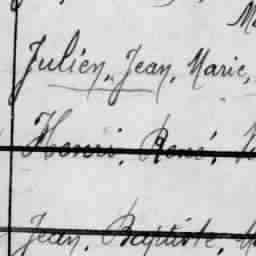 Julien, Jean, Marie,
Henri, René,
Jean, Baptiste,